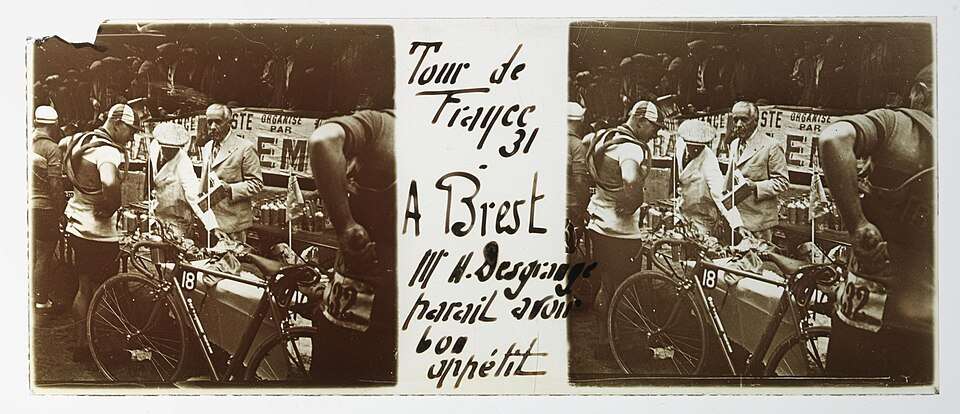 STE ORGANISÉ
PAR
EM
18
Tour de
France
31
A Brest
Mr H. Desgrange
parait avoir
bon
appétit
NCE
STE ORGANISÉ
PAR
EM
18